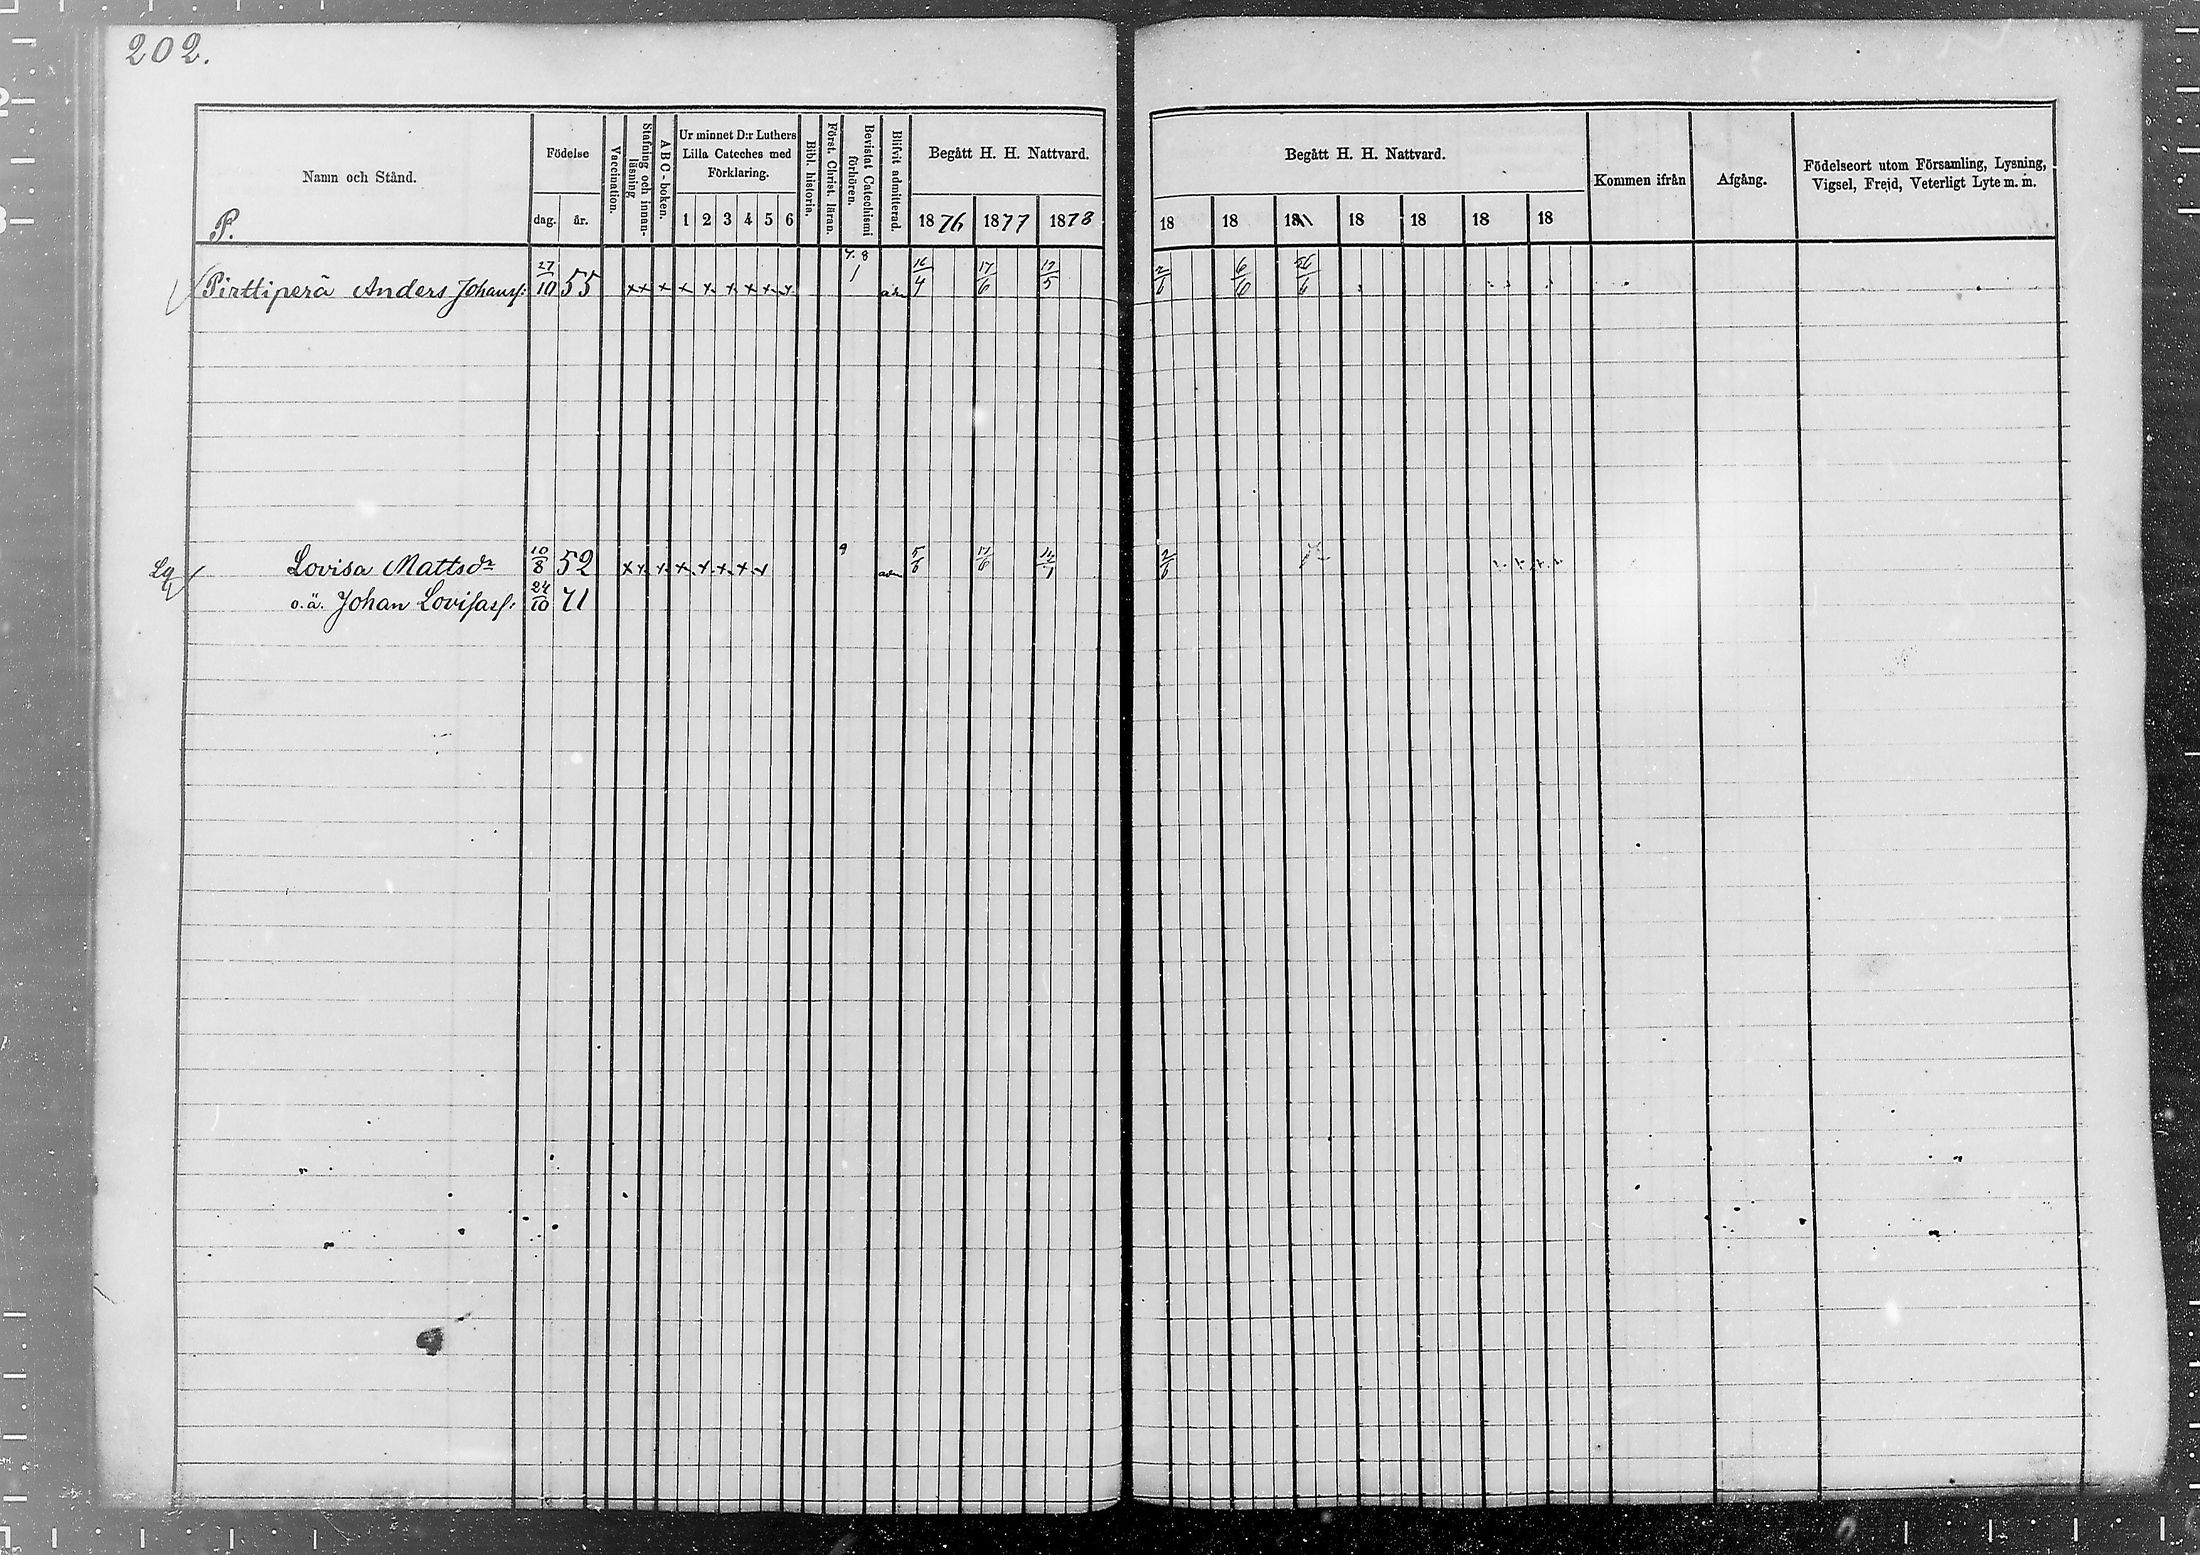 202.
Namn och Stånd.
P.
Födelse
dag. år.
Vaccination.
Stafning och innanläsning
A B C - boken.
Ur minnet D:r Luthers Lilla Cateches med Förklaring.
1 2 3 4 5 6
Bibl. historia.
Först. Christ. lära.
Bevistat Catechismi förhören.
Blifvit admitterad.
Begått H. H. Nattvard.
1876 1877 1878
Begått H. H. Nattvard.
18 18 18 18 18 18 18
Kommen ifrån
Afgång.
Födelseort utom Församling, Lysning, Vigsel, Frejd, Veterligt Lyte m. m.
Pirttiperä Anders Johansf: 27/10 55 x x x x x x x x x 7. 8 1 adm 16/4 17/6 12/5 2/6 6/6 26/6
Lovisa Mattsdr 10/8 52 x x x x x x x x 9 adm 5/6 17/6 2/6
o.ä. Johan Lovisasf: 24/10 71